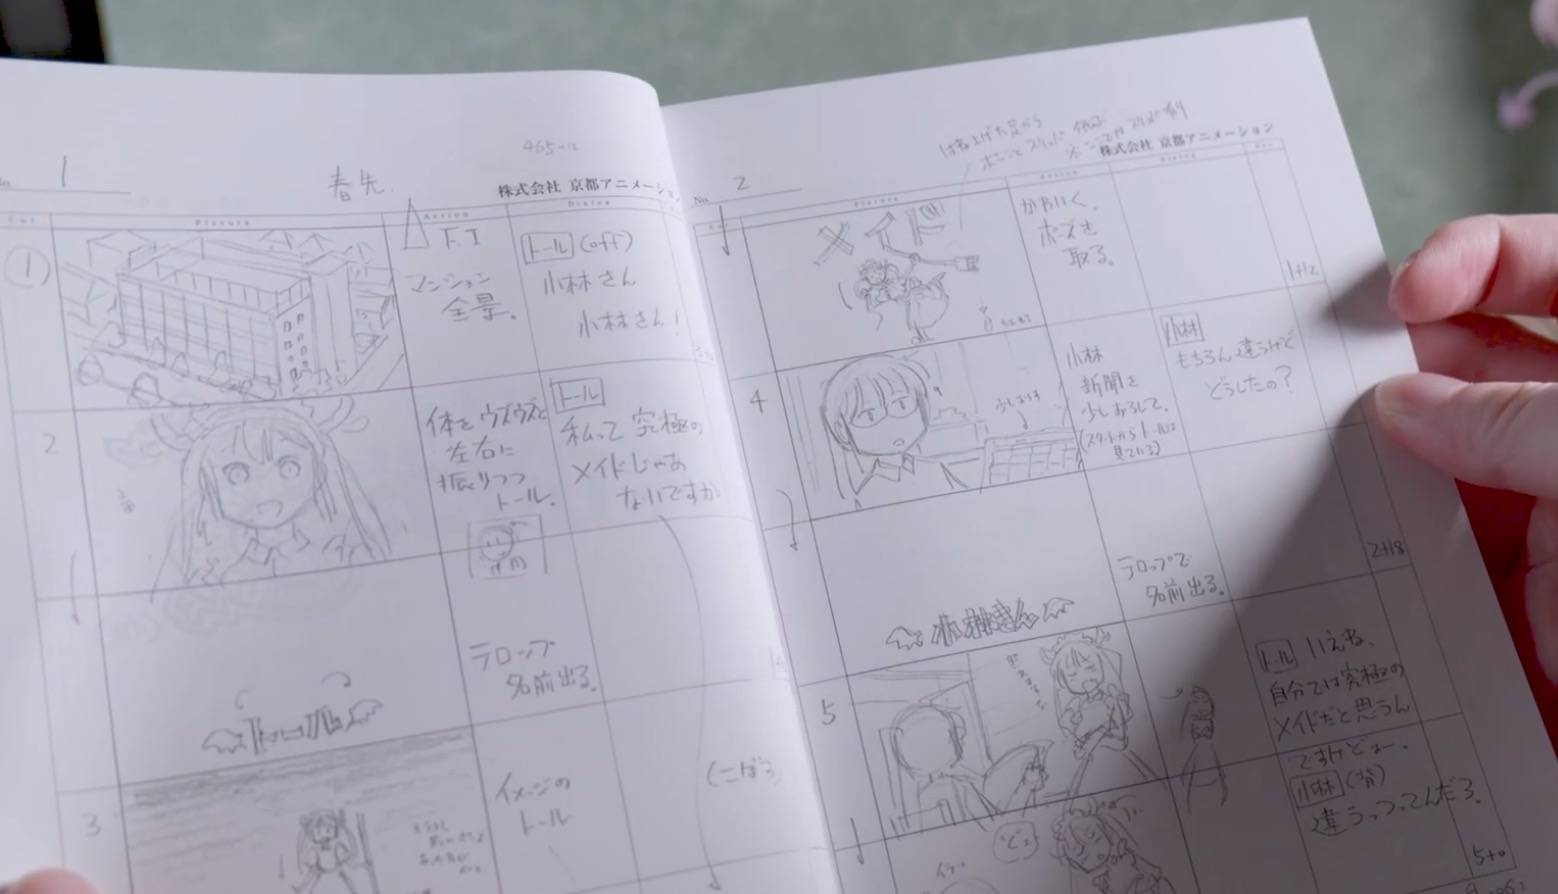 465+12
No. 1
春先
株式会社 京都アニメーション
Cut
Picture
Action
Dialog
①
F.I
マンション
全景。
トール (off)
小林さん
小林さん!
2
体をウズウズと
左右に
振りつつ
トール。
トール
私って究極の
メイドじゃあ
ないですか
トール
テロップ
名前出る。
3
イメージの
トール
(こぼう)
はね上げた足から
No. 2
株式会社 京都アニメーション
Picture
Action
Dialog
メイド
かわいく。
ポーズを
取る。
1+12
4
少しおろす
小林
新聞を
少しおろして。
(スタートからトールは
見ている)
小林
もちろん違うけど
どうしたの?
小林さん
テロップで
名前出る。
2+18
5
トール いえね、
自分では究極の
メイドだと思うん
ですけどねー。
小林 (背)
違うっつってんだろ。
5+0